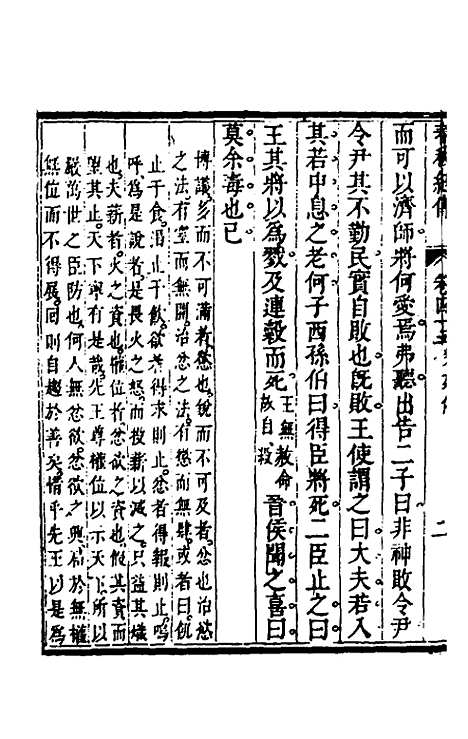 而可以濟師將何愛焉弗聽出告二子曰非神敗令尹
令尹其不勤民實自敗也旣敗王使謂之曰大夫若入
其若申息之老何子西孫伯曰得臣將死二臣止之曰
王其將以為戮及連穀而死王無赦命故自殺晉侯聞之喜曰
莫余毒也已
博議多而不可滿者慾也銳而不可及者忿也治慾
之法有窒而無開治忿之法有懲而無肆或者曰飢
止于食渴止于飲欲者得求則止忿者得報則止嗚
呼為是說者是畏火之怒而投薪以減之只益其熾
也夫薪者火之資也權位者忿欲之資也假其資而
望其止天下寧有是哉先王尊權位以示天下所以
嚴萬世之臣防也何人無忿欲忿欲之興局於無權
無位而不得展回則自趨於善矣惜乎先王以是為